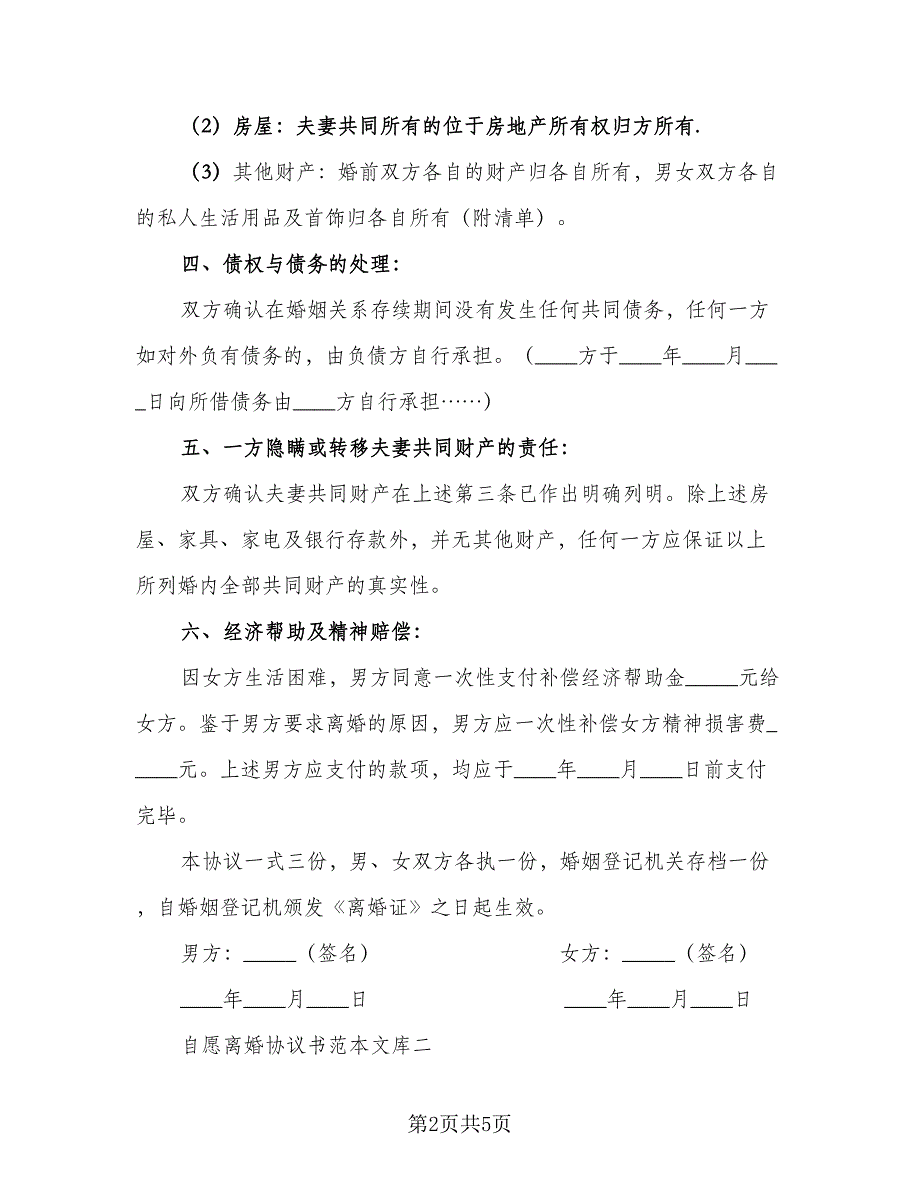 （2）房屋：夫妻共同所有的位于房地产所有权归方所有.
（3）其他财产：婚前双方各自的财产归各自所有，男女双方各自
的私人生活用品及首饰归各自所有（附清单）。
四、债权与债务的处理：
双方确认在婚姻关系存续期间没有发生任何共同债务，任何一方
如对外负有债务的，由负债方自行承担。（____方于____年____月___
_日向所借债务由____方自行承担……）
五、一方隐瞒或转移夫妻共同财产的责任：
双方确认夫妻共同财产在上述第三条已作出明确列明。除上述房
屋、家具、家电及银行存款外，并无其他财产，任何一方应保证以上
所列婚内全部共同财产的真实性。
六、经济帮助及精神赔偿：
因女方生活困难，男方同意一次性支付补偿经济帮助金_____元给
女方。鉴于男方要求离婚的原因，男方应一次性补偿女方精神损害费_
____元。上述男方应支付的款项，均应于____年____月____日前支付
完毕。
本协议一式三份，男、女双方各执一份，婚姻登记机关存档一份
，自婚姻登记机颁发《离婚证》之日起生效。
男方：_____（签名） 女方：_____（签名）
____年____月____日 ____年____月____日
自愿离婚协议书范本文库二
第2页共5页